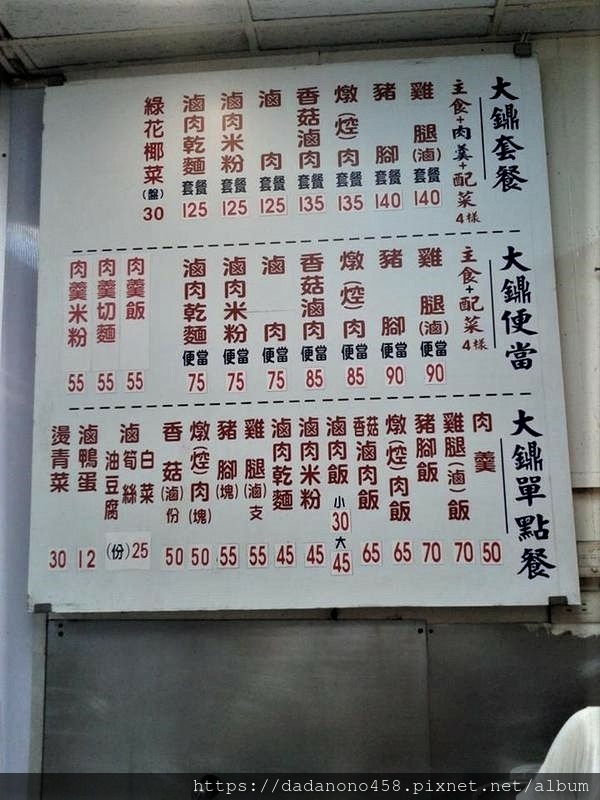 大鼎套餐
主食+肉羹+配菜4樣
雞腿(滷)套餐 140
豬腳套餐 140
燉(焢)肉套餐 135
香菇滷肉套餐 135
滷肉套餐 125
滷肉米粉套餐 125
滷肉乾麵套餐 125
綠花椰菜(盤) 30
大鼎便當
主食+配菜4樣
雞腿(滷)便當 90
豬腳便當 90
燉(焢)肉便當 85
香菇滷肉便當 85
滷肉便當 75
滷肉米粉便當 75
滷肉乾麵便當 75
肉羹飯 55
肉羹切麵 55
肉羹米粉 55
大鼎單點餐
肉羹 50
雞腿(滷)飯 70
豬腳飯 70
燉(焢)肉飯 65
香菇滷肉飯 65
滷肉飯 小30 大45
滷肉米粉 45
滷肉乾麵 45
雞腿(滷)支 55
豬腳(塊) 55
燉(焢)肉(塊) 50
香菇(滷)份 50
滷白菜 筍絲 油豆腐 (份)25
滷鴨蛋 12
燙青菜 30
https://dadanono458.pixnet.net/album